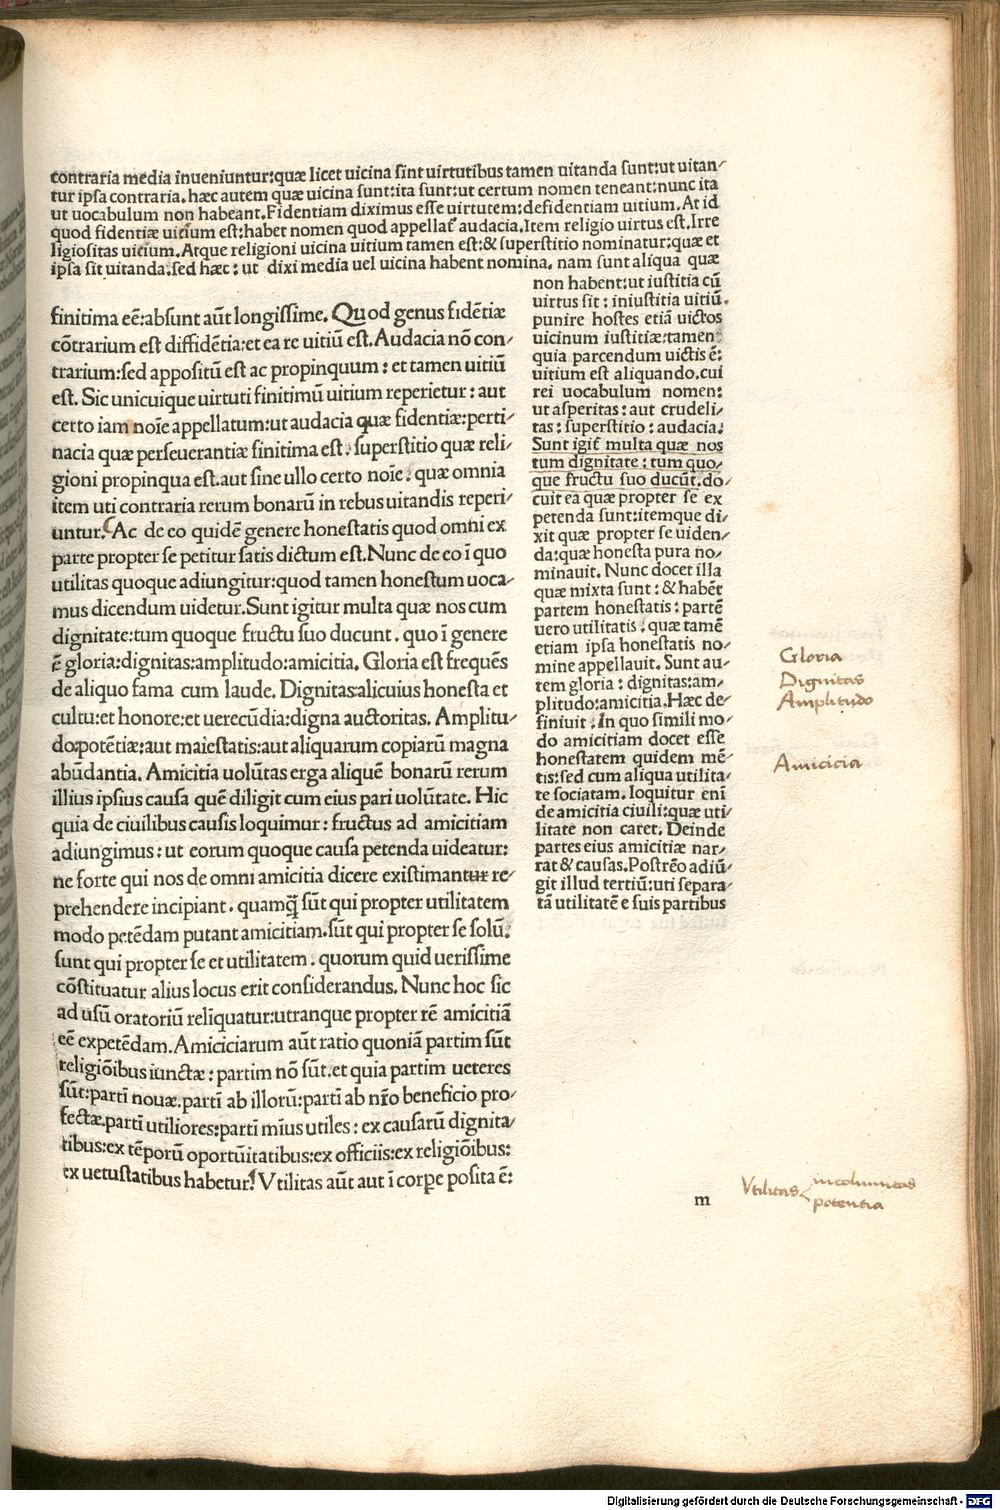 contraria media inueniuntur:quæ licet uicina sint uirtutibus tamen uitanda sunt:ut uitan/
tur ipsa contraria. hæc autem quæ uicina sunt:ita sunt:ut certum nomen teneant:nunc ita
ut uocabulum non habeant. Fidentiam diximus esse uirtutem:defidentiam uitium. At id
quod fidentiæ uicium est:habet nomen quod appellat᷑ audacia. Item religio uirtus est. Irre
ligiositas uicium. Atque religioni uicina uitium tamen est:& superstitio nominatur:quæ et
ipsa sit uitanda:sed hæc: ut dixi media uel uicina habent nomina. nam sunt aliqua quæ
non habent:ut iustitia cū
uirtus sit: iniustitia uitiū.
punire hostes etiā uictos
uicinum iustitiæ:tamen
quia parcendum uictis ē:
uitium est aliquando.cui
rei uocabulum nomen:
ut asperitas: aut crudeli
tas: superstitio: audacia.
Sunt igit᷑ multa quæ nos
tum dignitate: tum quo/
que fructu suo ducūt.do/
cuit ea quæ propter se ex
petenda sunt:itemque di/
xit quæ propter se uiden/
da:quæ honesta pura no/
minauit. Nunc docet illa
quæ mixta sunt: & habēt
partem honestatis: partē
uero utilitatis: quæ tamē
etiam ipsa honestatis no/
mine appellauit. Sunt au/
tem gloria: dignitas:am/
plitudo:amicitia. Hæc de/
finiuit. In quo simili mo/
do amicitiam docet esse
honestatem quidem mē/
tis:sed cum aliqua utilita/
te sociatam. loquitur enī
de amicitia ciuili:quæ uti/
litate non caret. Deinde
partes eius amicitiæ nar/
rat & causas. Postrēo adiū/
git illud tertiū:uti separa/
tā utilitatē e suis partibus
finitima eē:absunt aūt longissime. Quod genus fidētiæ
cōtrarium est diffidētia:et ea re uitiū est. Audacia nō con/
trarium:sed appositū est ac propinquum: et tamen uitiū
est. Sic unicuique uirtuti finitimū uitium reperietur: aut
certo iam noīe appellatum:ut audacia quæ fidentiæ:perti/
nacia quæ perseuerantiæ finitima est: superstitio quæ reli/
gioni propinqua est.aut sine ullo certo noīe: quæ omnia
item uti contraria rerum bonarū in rebus uitandis reperi/
untur. Ac de eo quidē genere honestatis quod omni ex
parte propter se petitur satis dictum est. Nunc de eo ī quo
utilitas quoque adiungitur:quod tamen honestum uoca/
mus dicendum uidetur. Sunt igitur multa quæ nos cum
dignitate:tum quoque fructu suo ducunt. quo ī genere
ē gloria:dignitas:amplitudo:amicitia. Gloria est frequēs
de aliquo fama cum laude. Dignitas:alicuius honesta et
cultu:et honore:et uerecūdia:digna auctoritas. Amplitu/
do:potētiæ:aut maiestatis:aut aliquarum copiarū magna
abūdantia. Amicitia uolūtas erga aliquē bonarū rerum
illius ipsius causa quē diligit cum eius pari uolūtate. Hic
quia de ciuilibus causis loquimur: fructus ad amicitiam
adiungimus: ut eorum quoque causa petenda uideatur:
ne forte qui nos de omni amicitia dicere existimantur re/
prehendere incipiant. quamq̄ sūt qui propter utilitatem
modo petēdam putant amicitiam.sūt qui propter se solū:
sunt qui propter se et utilitatem. quorum quid uerissime
cōstituatur alius locus erit considerandus. Nunc hoc sic
ad usū oratoriū relīquatur:utranque propter rē amicitiā
eē expetēdam. Amiciciarum aūt ratio quoniā partim sūt
religiōibus iunctæ: partim nō sūt.et quia partim ueteres
sūt:partī nouæ.partī ab illorū:partī ab nr̄o beneficio pro/
fectæ.partī utiliores:partī mīus utiles: ex causarū dignita/
tibus:ex tēporū oportūitatibus:ex officiis:ex religiōibus:
ex uetustatibus habetur. Vtilitas aūt aut ī corpe posita ē:
m
Gloria
Dignitas
Amplitudo
Amicicia
Vtilitas
incolumitas
potentia
Digitalisierung gefördert durch die Deutsche Forschungsgemeinschaft - DFG